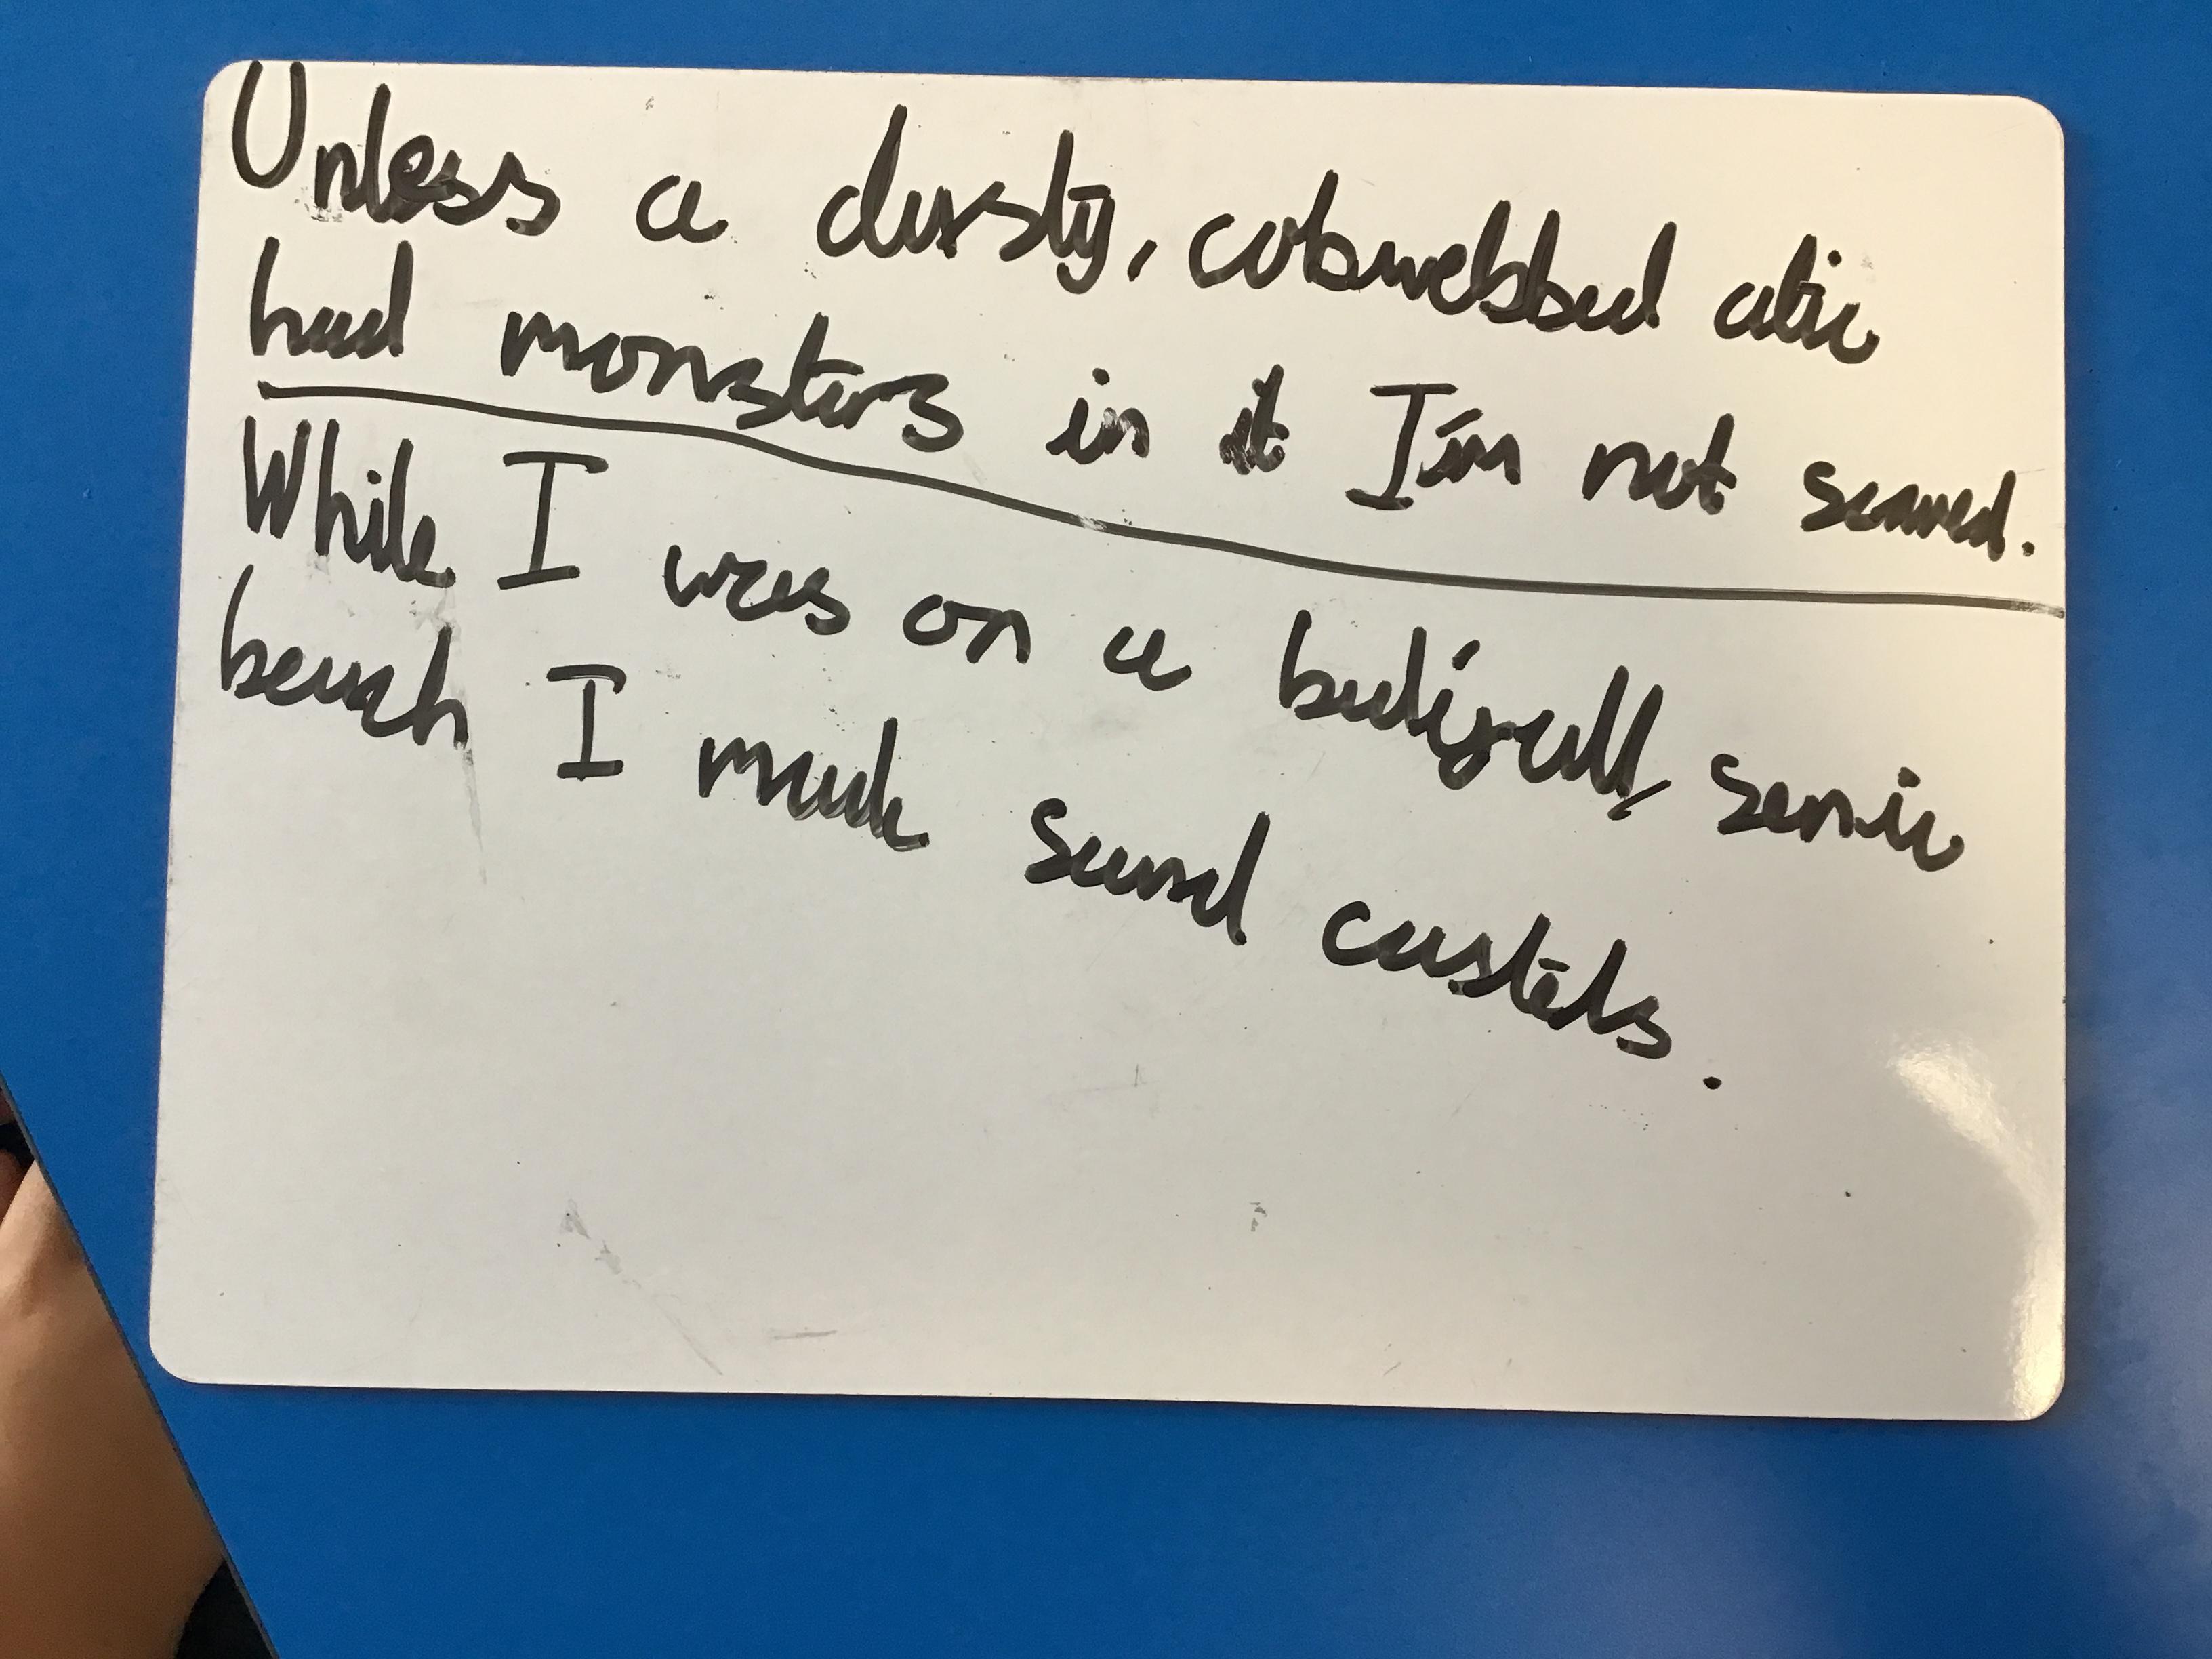 Unless a dursty, cobwebbed atic
had monsters in it I'm not scared.
While I was on a butifull, senic
beach I made sand castels.